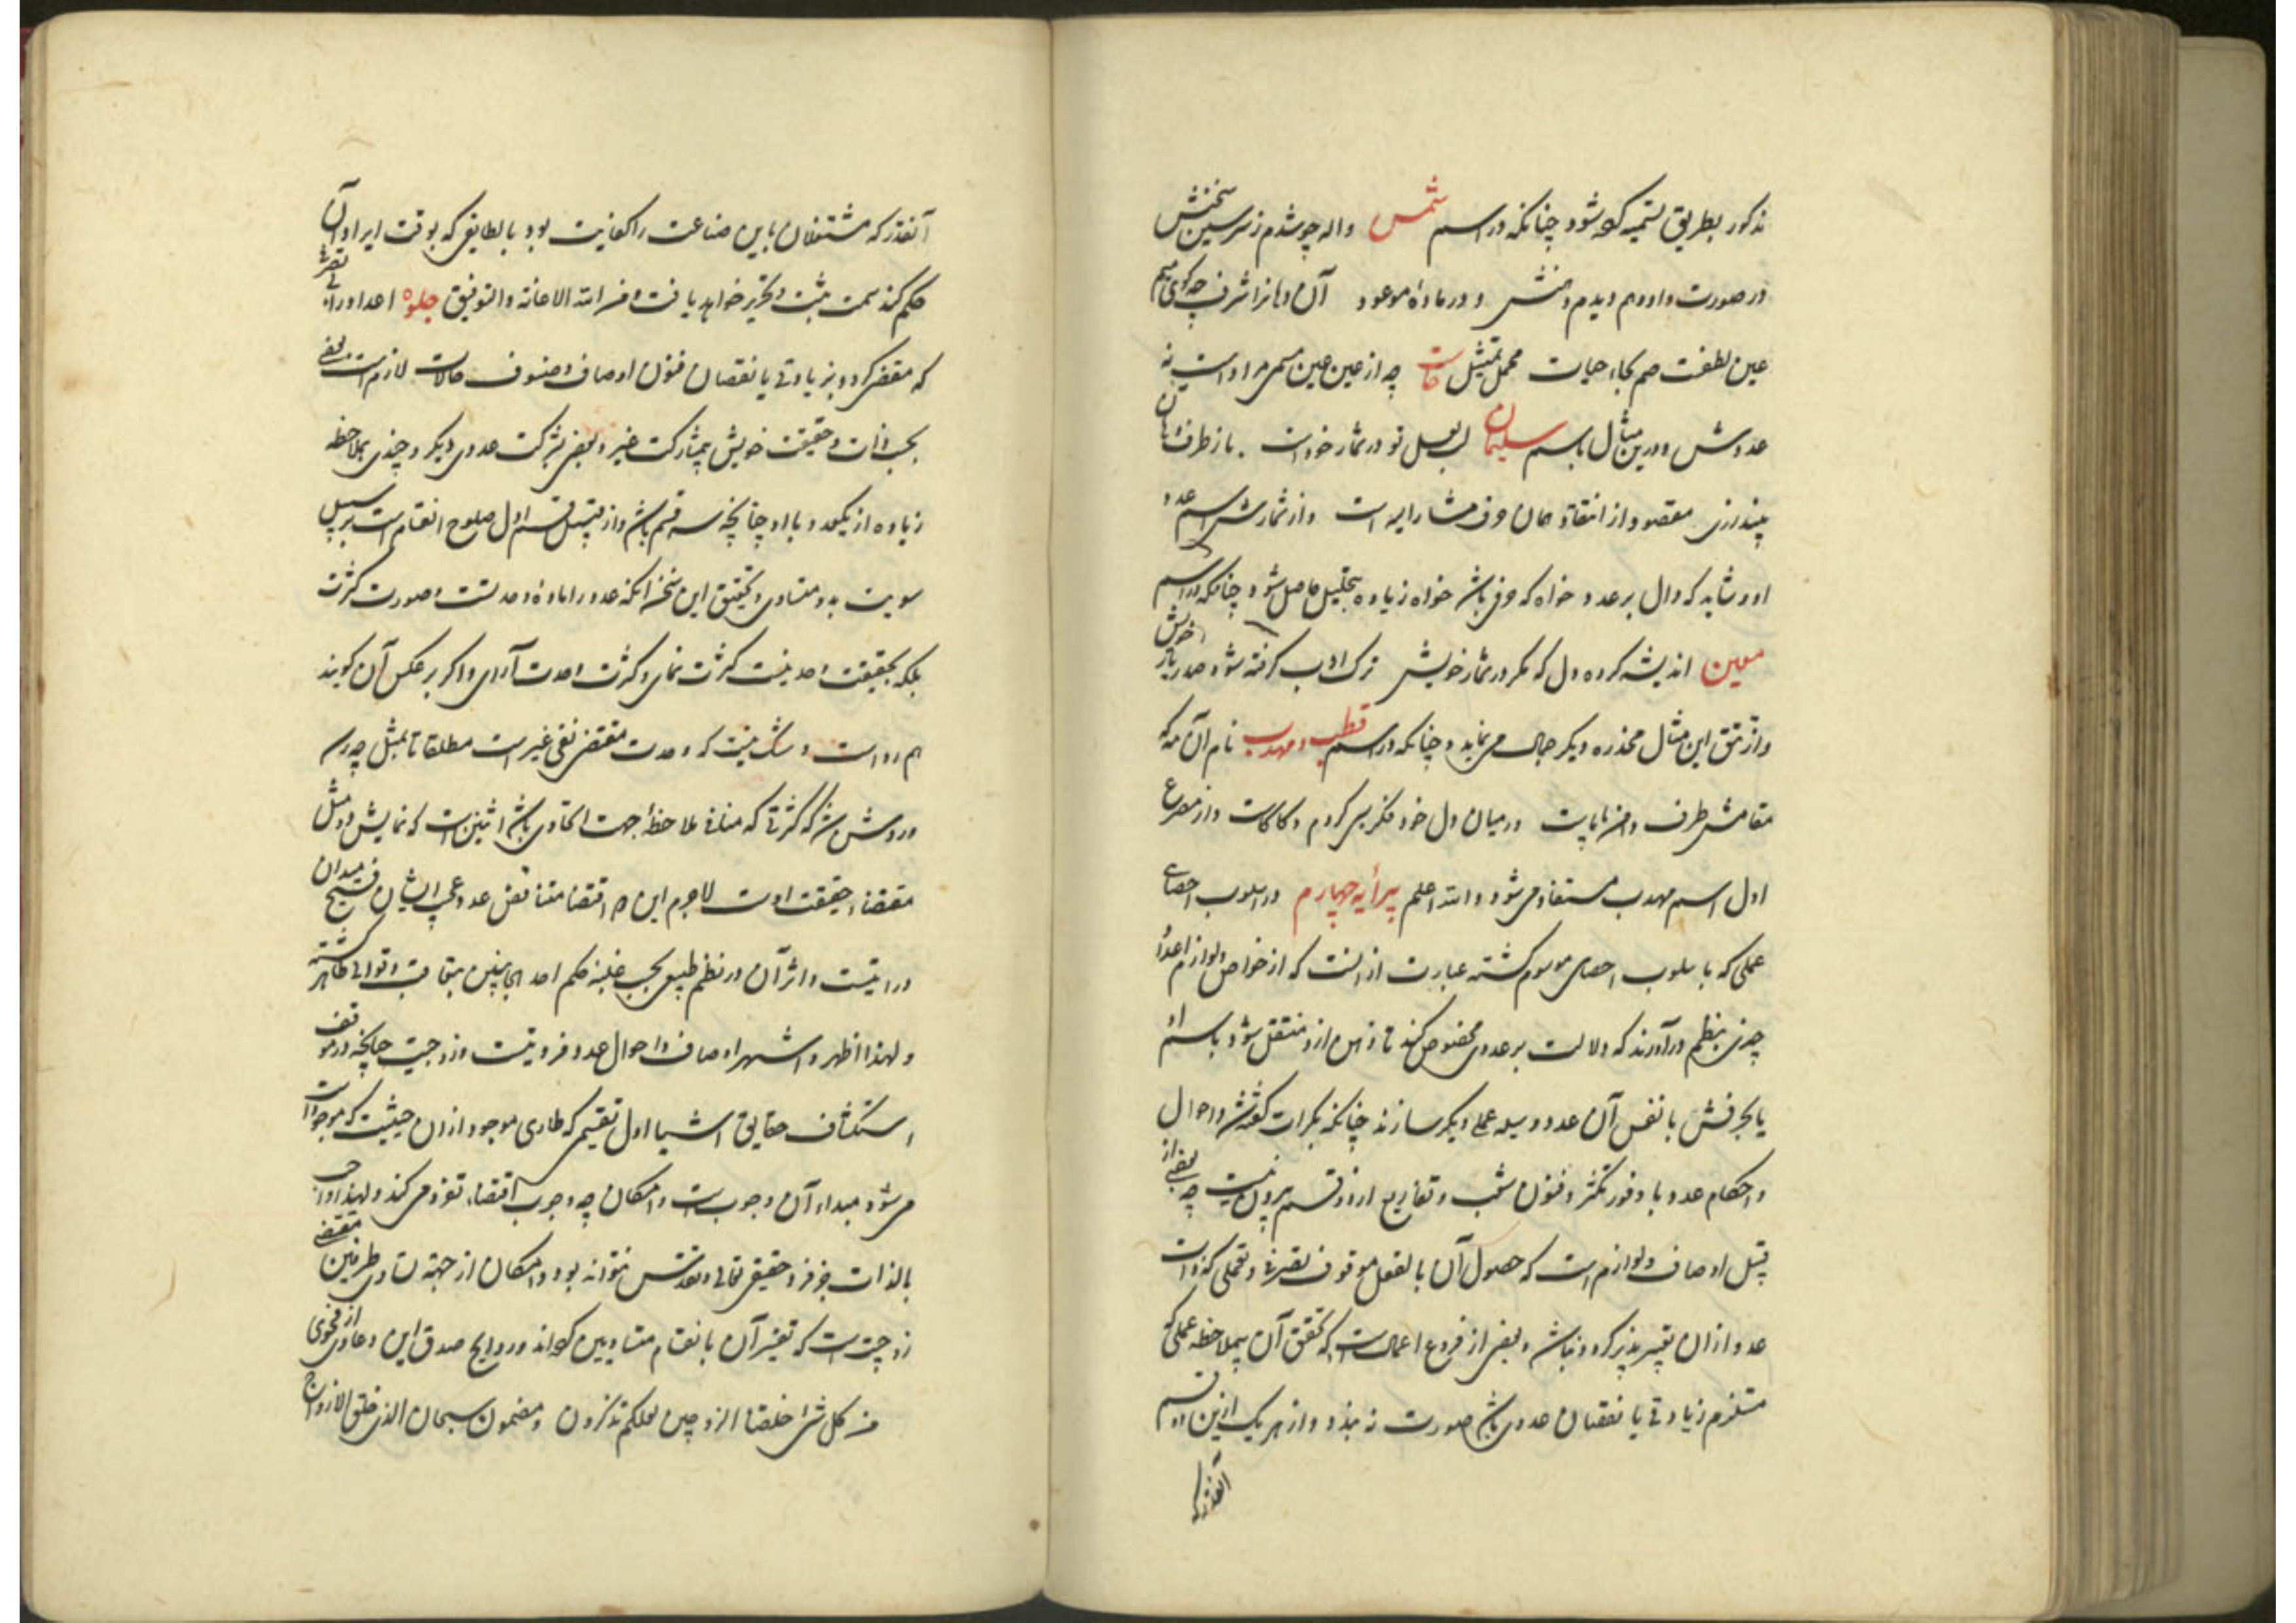 مذکور بطریق تسمیه کرده شود چنانکه در اسم شمس واله چو شدم ز سر سین سخنش
در صورت داودم دیدم دهنش و در ماده موعود آن دهانرا شرف چه گوی میم
عین لطفت هم بجاء حیات محمل تمثیل چه از عین عین مسمی مراد است نه
عددش و درین مثال باسم سلیمان لب لعل تو در شمار خود است باز طرف
پیندرزی مقصود از انتقاد همان حرف مشار الیه است و از شمارش اسم عدد
او و شاید که دال بر عدد خواه که حرفی باشد خواه زیاده بتحلیل حاصل شود چنانکه در اسم
معین اندیشه کرده دل که مگر در شمار خویش ترک ادب گرفته شود صدر یار خویش
و از تتق این مثال مخدره دیگر جمال می نماید و چنانکه در اسم قطب و مهدب نام آن مه که
مقامش طرف دامن ماست در میان دل خود فکر بسی کردم و کاست و از مصرع
اول اسم مهدب مستفاد می شود والله اعلم پیرایه چهارم در اسلوب احصای
عملی که باسلوب احصای موسوم گشته عبارت از انست که از خواص و لوازم اعداد
چیزی بنظم در آورند که دلالت بر عددی مخصوص کند تا ذهن از و منتقل شود باسم او
یا بحرفش یا نفس آن عدد وسیله عملی دیگر سازند چنانکه بکرات گفته شد و احوال
و احکام عدد با وفور تکثر و فنون شعب و تفاریع از دو قسم بیرون نیست چه بعضی از
قبیل اوصاف و لوازم است که حصول آن بالفعل موقوف تصرفی و تعملی که ذات
عدد از ان تغییر پذیر گردد نباشد و بعضی از فروع اعمالست که تحقق آن بملاحظه عملی که
مستلزم زیادتی یا نقصان عددی باشد صورت نه بندد و از هر یک ازین دو قسم
آنقدر که
آنقدر که مشتغلان باین صناعت را کفایت بود با لطایفی که بوقت ایراد آن
حکم کند سمت ثبت و تحریر خواهد یافت و من الله الاعانة والتوفیق جلوه اعداد را بی تصرفی
که مقتضی گردد بزیادتی یا نقصان فنون اوصاف و صنوف حالات لازم است بعضی
بحسب ذات و حقیقت خویش بی مشارکت غیر و بعضی بشرکت عددی دیگر و چندی بملاحظه
زیاده از یکعدد با او چنانچه سه قسم باشد و از قبیل قسم اول صلوح انقسام است بر سبیل
سویت بدو متساوی و تحقیق این سخن آنکه عدد را ماده وحدتست و صورت کثرت
بلکه بحقیقت احدیت کثرت نمای و کثرت احدیت آرای و اگر بر عکس آن گویند
هم رواست و شک نیست که وحدت مقتضی نفی غیر است مطلقا تا بمثل چه رسد
و روشن شد که کثرتی که منافی ملاحظه جهت اتحادی باشد اثنین است که نمایش دو مثل
مقتضاء حقیقت اوست لاجرم این دو اقتضا متناقض عدد عجب ایشان فسیح میدان
در اثنیت و اثر آن در نظم طبیعی بحسب غلبه حکم احد الجانبین بتعاقب و توالی ظاهر گشته
و لهذا اظهر و اشهر اوصاف و احوال عدد فردیت و زوجیت چنانچه در موقف
استکشاف حقایق اشیا اول تقسیمی که طاری موجود از ان حیثیت که موجودات
می شود مبداء آن وجوبست و امکان چه وجوب اقتضاء تفرد می کند و لهذا واجب
بالذات جز فرد حقیقی تعالی و تقدس نتواند بود و امکان از جهة تساوی طرفین مقتضی
زوجیتست که تفسیر آن بانقسام متساویین کرده اند و روایح صدق این دعاوی از فحوی
من کل شیء خلقنا الزوجین لعلکم تذکرون و مضمون سبحان الذی خلق الازواج